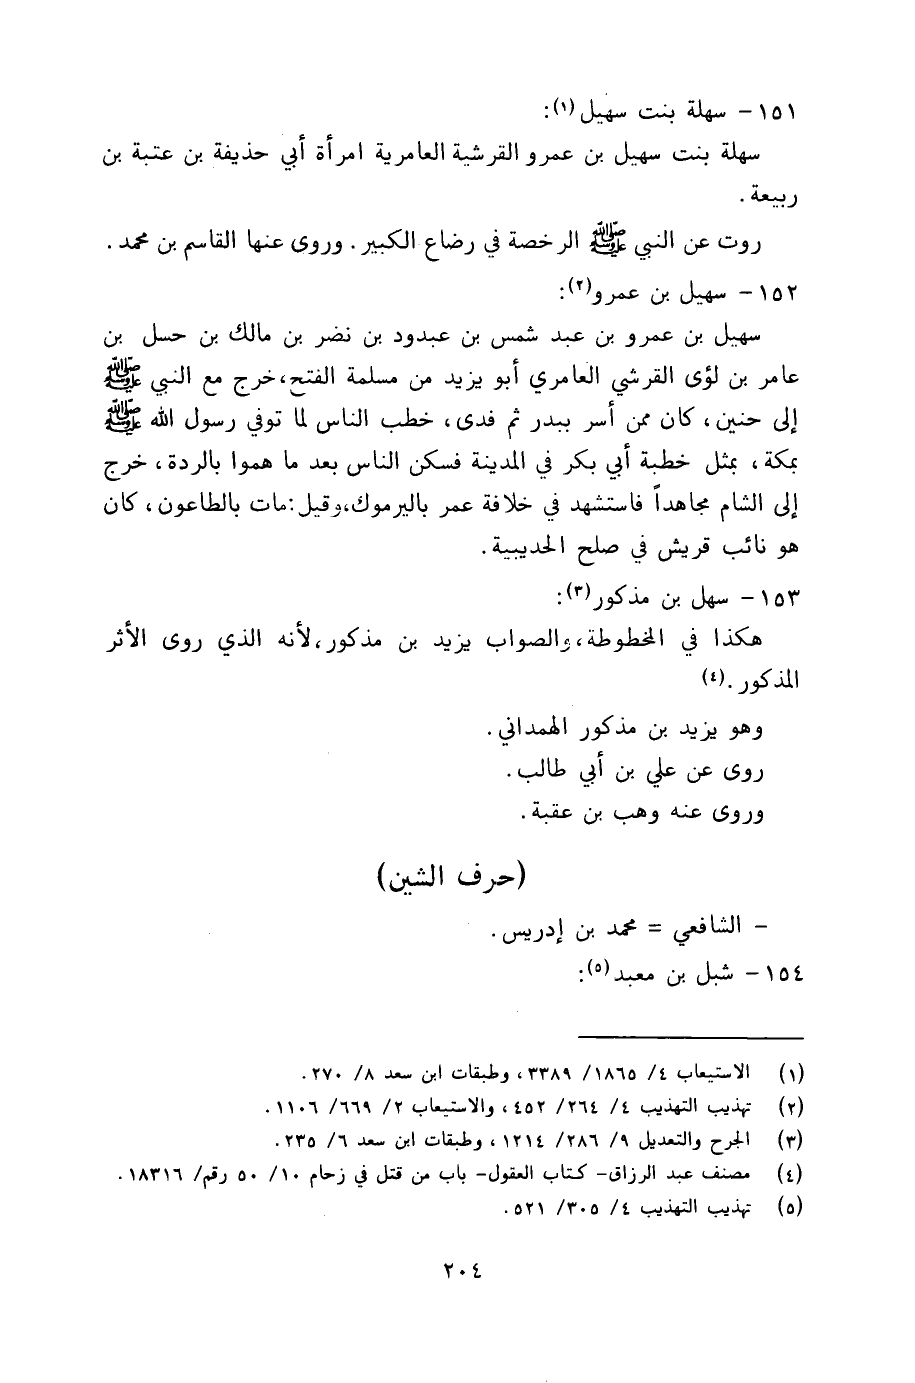 ١٥١ - سهلة بنت سهيل(١):
سهلة بنت سهيل بن عمرو القرشية العامرية امرأة أبي حذيفة بن عتبة بن
ربيعة .
روت عن النبي ﷺ الرخصة في رضاع الكبير . وروى عنها القاسم بن محمد .
١٥٢ - سهيل بن عمرو(٢):
سهيل بن عمرو بن عبد شمس بن عبدود بن نضر بن مالك بن حسل بن
عامر بن لؤى القرشي العامري أبو يزيد من مسلمة الفتح،خرج مع النبي ﷺ
إلى حنين، كان ممن أسر ببدر ثم فدى، خطب الناس لما توفي رسول الله ﷺ
بمكة، بمثل خطبة أبي بكر في المدينة فسكن الناس بعد ما هموا بالردة، خرج
إلى الشام مجاهداً فاستشهد في خلافة عمر باليرموك،وقيل:مات بالطاعون، كان
هو نائب قريش في صلح الحديبية .
١٥٣ - سهل بن مذكور(٣):
هكذا في المخطوطة،والصواب يزيد بن مذكور،لأنه الذي روى الأثر
المذكور .(٤)
وهو يزيد بن مذكور الهمداني .
روى عن علي بن أبي طالب .
وروى عنه وهب بن عقبة .
(حرف الشين)
- الشافعي = محمد بن إدريس .
١٥٤ - شبل بن معبد(٥):
(١) الاستيعاب ٤/ ١٨٦٥/ ٣٣٨٩، وطبقات ابن سعد ٨/ ٢٧٠ .
(٢) تهذيب التهذيب ٤/ ٢٦٤/ ٤٥٢، والاستيعاب ٢/ ٦٦٩/ ١١٠٦ .
(٣) الجرح والتعديل ٩/ ٢٨٦/ ١٢١٤، وطبقات ابن سعد ٦/ ٢٣٥ .
(٤) مصنف عبد الرزاق- كتاب العقول- باب من قتل في زحام ١٠/ ٥٠ رقم/ ١٨٣١٦ .
(٥) تهذيب التهذيب ٤/ ٣٠٥/ ٥٢١ .
٢٠٤